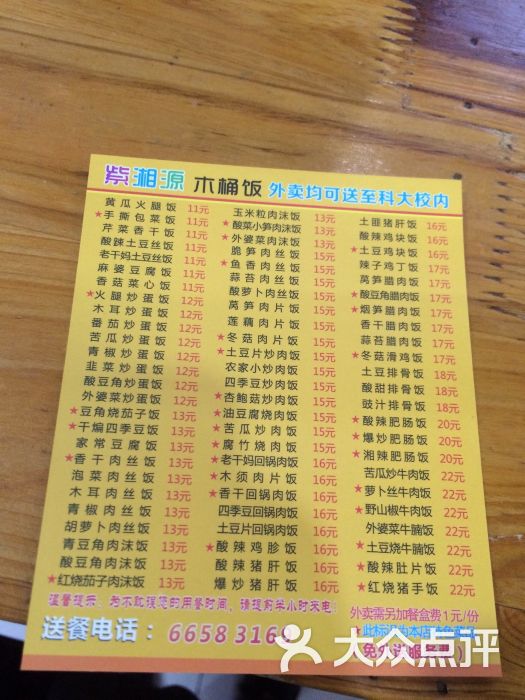 紫湘源 木桶饭 外卖均可送至科大校内
黄瓜火腿饭 11元
★手撕包菜饭 11元
芹菜香干饭 11元
酸辣土豆丝饭 11元
老干妈土豆丝饭 11元
麻婆豆腐饭 11元
香菇菜心饭 11元
★火腿炒蛋饭 12元
木耳炒蛋饭 12元
番茄炒蛋饭 12元
苦瓜炒蛋饭 12元
青椒炒蛋饭 12元
韭菜炒蛋饭 12元
酸豆角炒蛋饭 12元
外婆菜炒蛋饭 12元
★豆角烧茄子饭 13元
★干煸四季豆饭 13元
家常豆腐饭 13元
★香干肉丝饭 13元
泡菜肉丝饭 13元
木耳肉丝饭 13元
青椒肉丝饭 13元
胡萝卜肉丝饭 13元
青豆角肉沫饭 13元
酸豆角肉沫饭 13元
★红烧茄子肉沫饭 13元
玉米粒肉沫饭 13元
★酸菜小笋肉沫饭 13元
★外婆菜肉沫饭 13元
脆笋肉丝饭 15元
★鱼香肉丝饭 15元
蒜苔肉丝饭 15元
酸萝卜肉丝饭 15元
莴笋肉片饭 15元
莲藕肉片饭 15元
★冬菇肉片饭 15元
★土豆片炒肉饭 15元
农家小炒肉饭 15元
四季豆炒肉饭 15元
★杏鲍菇炒肉饭 15元
★油豆腐烧肉饭 15元
★苦瓜炒肉饭 15元
★腐竹烧肉饭 15元
★老干妈回锅肉饭 16元
★木须肉片饭 16元
★香干回锅肉饭 16元
四季豆回锅肉饭 16元
土豆片回锅肉饭 16元
★酸辣鸡胗饭 16元
酸辣猪肝饭 16元
爆炒猪肝饭 16元
土匪猪肝饭 16元
酸辣鸡块饭 16元
★土豆鸡块饭 17元
辣子鸡丁饭 17元
莴笋腊肉饭 17元
★酸豆角腊肉饭 17元
★烟笋腊肉饭 17元
香干腊肉饭 17元
蒜苔腊肉饭 17元
★冬菇滑鸡饭 17元
土豆排骨饭 18元
酸甜排骨饭 18元
豉汁排骨饭 18元
★酸辣肥肠饭 20元
★爆炒肥肠饭 20元
★湘辣肥肠饭 20元
苦瓜炒牛肉饭 22元
★萝卜丝牛肉饭 22元
★野山椒牛肉饭 22元
外婆菜牛腩饭 22元
★土豆烧牛腩饭 22元
★酸辣肚片饭 22元
★红烧猪手饭 22元
温馨提示：为不耽误您的用餐时间，请提前半小时来电。
外卖需另加餐盒费1元/份
送餐电话：6658316
★此标识为本店特色菜品
大众点评